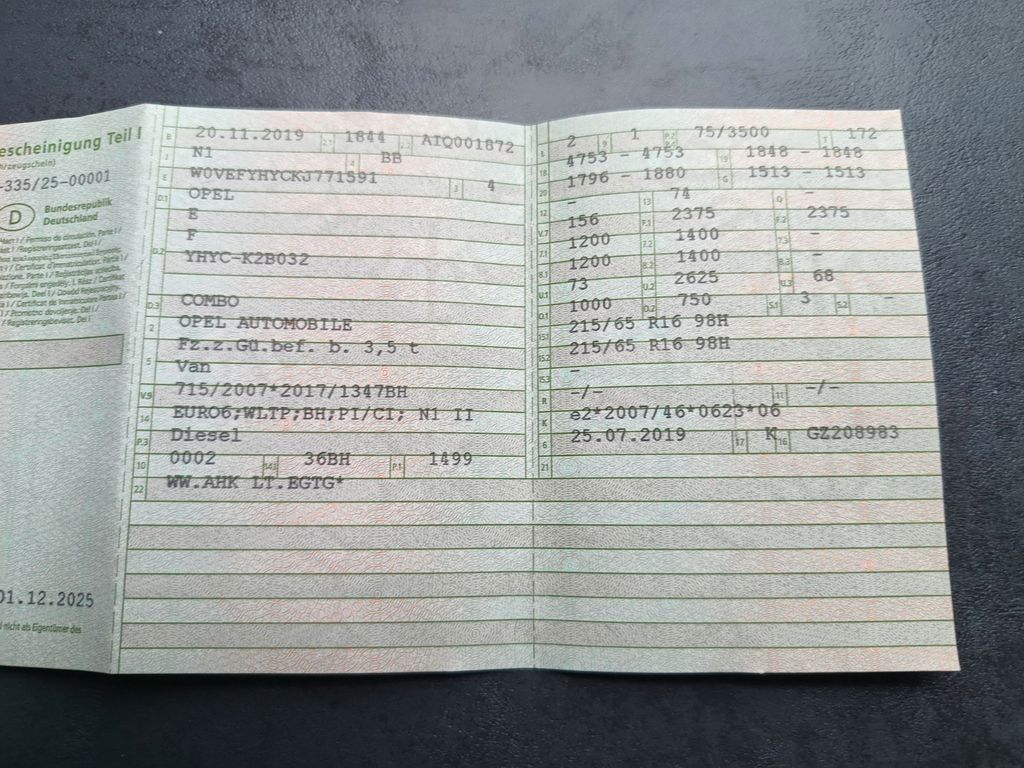 escheinigung Teil I
hrzeugschein)
-335/25-00001
D Bundesrepublik
Deutschland
01.12.2025
nicht als Eigentümer des
B 20.11.2019 2.1 1844 2.2 AIQ001872
J N1 4 BB
E W0VEFYHYCKJ771591 3 4
D.1 OPEL
E
D.2 F
YHYC-K2B032
D.3 COMBO
2 OPEL AUTOMOBILE
5 Fz.z.Gü.bef. b. 3,5 t
Van
V.9 715/2007*2017/1347BH
14 EURO6;WLTP;BH;PI/CI; N1 II
P.3 Diesel
10 0002 14.1 36BH P.1 1499
22 WW.AHK LT.EGTG*
L 2 9 1 P.2 P.4 75/3500 T 172
18 4753 - 4753 19 1848 - 1848
20 1796 - 1880 G 1513 - 1513
12 - 13 74 Q -
V.7 156 F.1 2375 F.2 2375
7.1 1200 7.2 1400 7.3 -
8.1 1200 8.2 1400 8.3 -
U.1 73 U.2 2625 U.3 68
O.1 1000 O.2 750 S.1 3 S.2 -
15.1 215/65 R16 98H
15.2 215/65 R16 98H
15.3 -
R -/- 11 -/-
K e2*2007/46*0623*06
6 25.07.2019 17 K 16 GZ208983
21